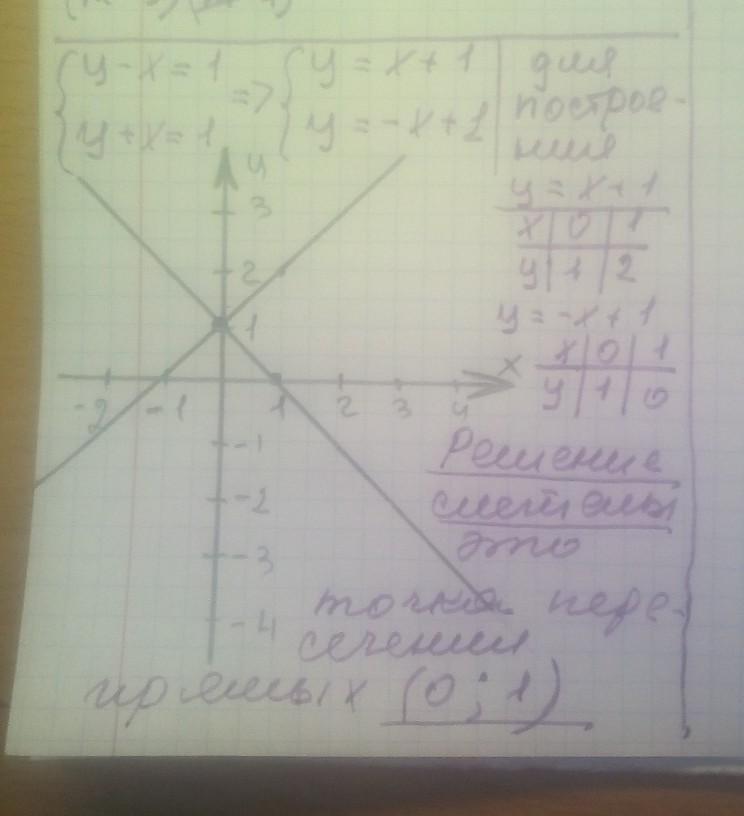 { y - x = 1 => { y = x + 1
{ y + x = 1 { y = -x + 1
для
построе-
ния
y = x + 1
x | 0 | 1
y | 1 | 2
y = -x + 1
x | 0 | 1
y | 1 | 0
y
3
2
1
x
-2 -1 1 2 3 4
-1
-2
-3
-4
Решение
системы
это
точка пере-
сечения
прямых (0; 1)